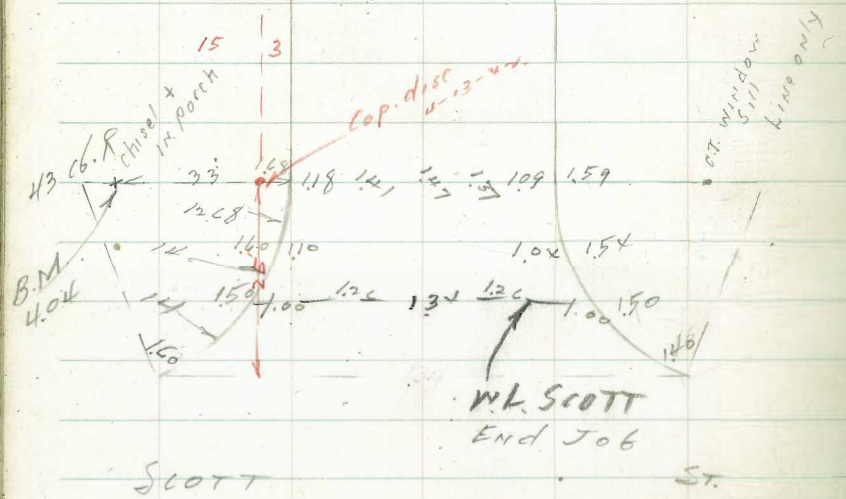 15 3
Cop. disc
4-13-42
chisel +
in porch
C.T. Window
Sill
Line only
43 C.B. R
33 1.68 1.18 1.41 1.47 1.37 1.09 1.59
1.60 1.10 1.04 1.54
B.M
4.04
14
14 1.50 1.00 1.26 1.34 1.26 1.00 1.50
1.60 1.40
W.L. SCOTT
End Job
SCOTT ST.